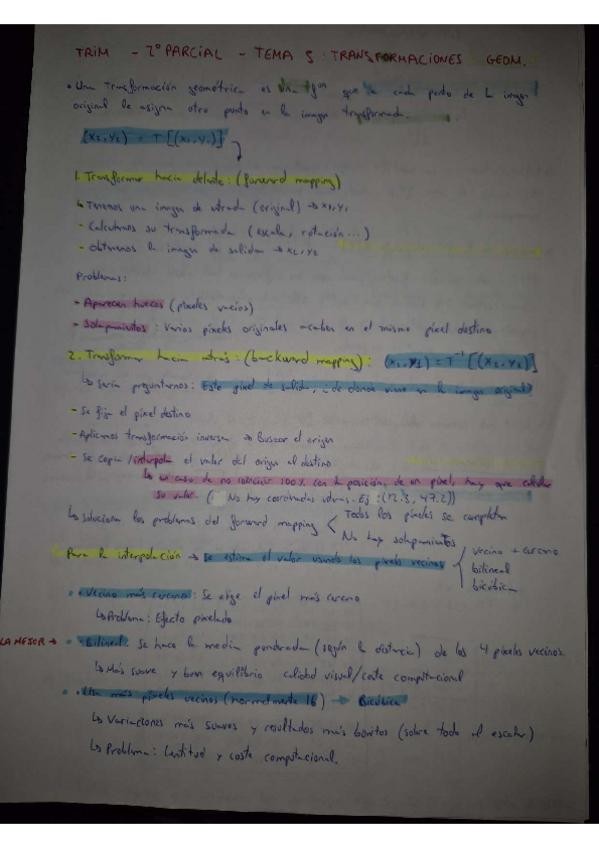 TRIM - 2º PARCIAL - TEMA 5: TRANSFORMACIONES GEOM.
• Una transformación geométrica es una fgon que a cada punto de L imagen
original le asigna otro punto en la imagen transformada.
(x2,y2) = T[(x1,y1)]
1. Transformar hacia delante: (forward mapping)
↳ Tenemos una imagen de entrada (original) → x1,y1
- Calculamos su transformada (escala, rotación...)
- Obtenemos la imagen de salida → x2,y2
Problemas:
- Aparecen huecos (píxeles vacíos)
- Solapamientos: Varios píxeles originales acaban en el mismo píxel destino
2. Transformar hacia atrás: (backward mapping): (x1,y1) = T⁻¹[(x2,y2)]
↳ sería preguntarnos: Este píxel de salida, ¿de donde viene en la imagen original?
- Se fija el píxel destino
- Aplicamos transformación inversa → Buscar el origen
- Se copia/interpola el valor del origen al destino.
↳ en caso de no coincidir 100% con la posición de un píxel, hay que calcular
su valor. (No hay coordenadas Ej: (12.3, 47.2))
↳ soluciona los problemas del forward mapping < Todos los píxeles se completan
No hay solapamientos
Para la interpolación → se estima el valor usando los píxeles vecinos
vecino + cercano
bilineal
bicúbica
• Vecino más cercano: Se elige el píxel más cercano
↳ Problema: Efecto pixelado
LA MEJOR → • Bilineal: Se hace la media ponderada (según la distancia) de los 4 píxeles vecinos.
↳ Más suave y buen equilibrio calidad visual/coste computacional
• Usa más píxeles vecinos (normalmente 16) → Bicúbica
↳ Variaciones más suaves y resultados más bonitos (sobre todo al escalar)
↳ Problema: Lentitud y coste computacional.